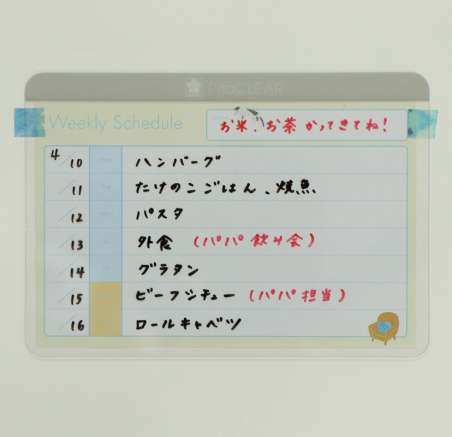 Weekly Schedule
お米、お茶 かってきてね!
4/10 ハンバーグ
/11 たけのこごはん、焼魚
/12 パスタ
/13 外食 (パパ飲み会)
/14 グラタン
/15 ビーフシチュー (パパ担当)
/16 ロールキャベツ